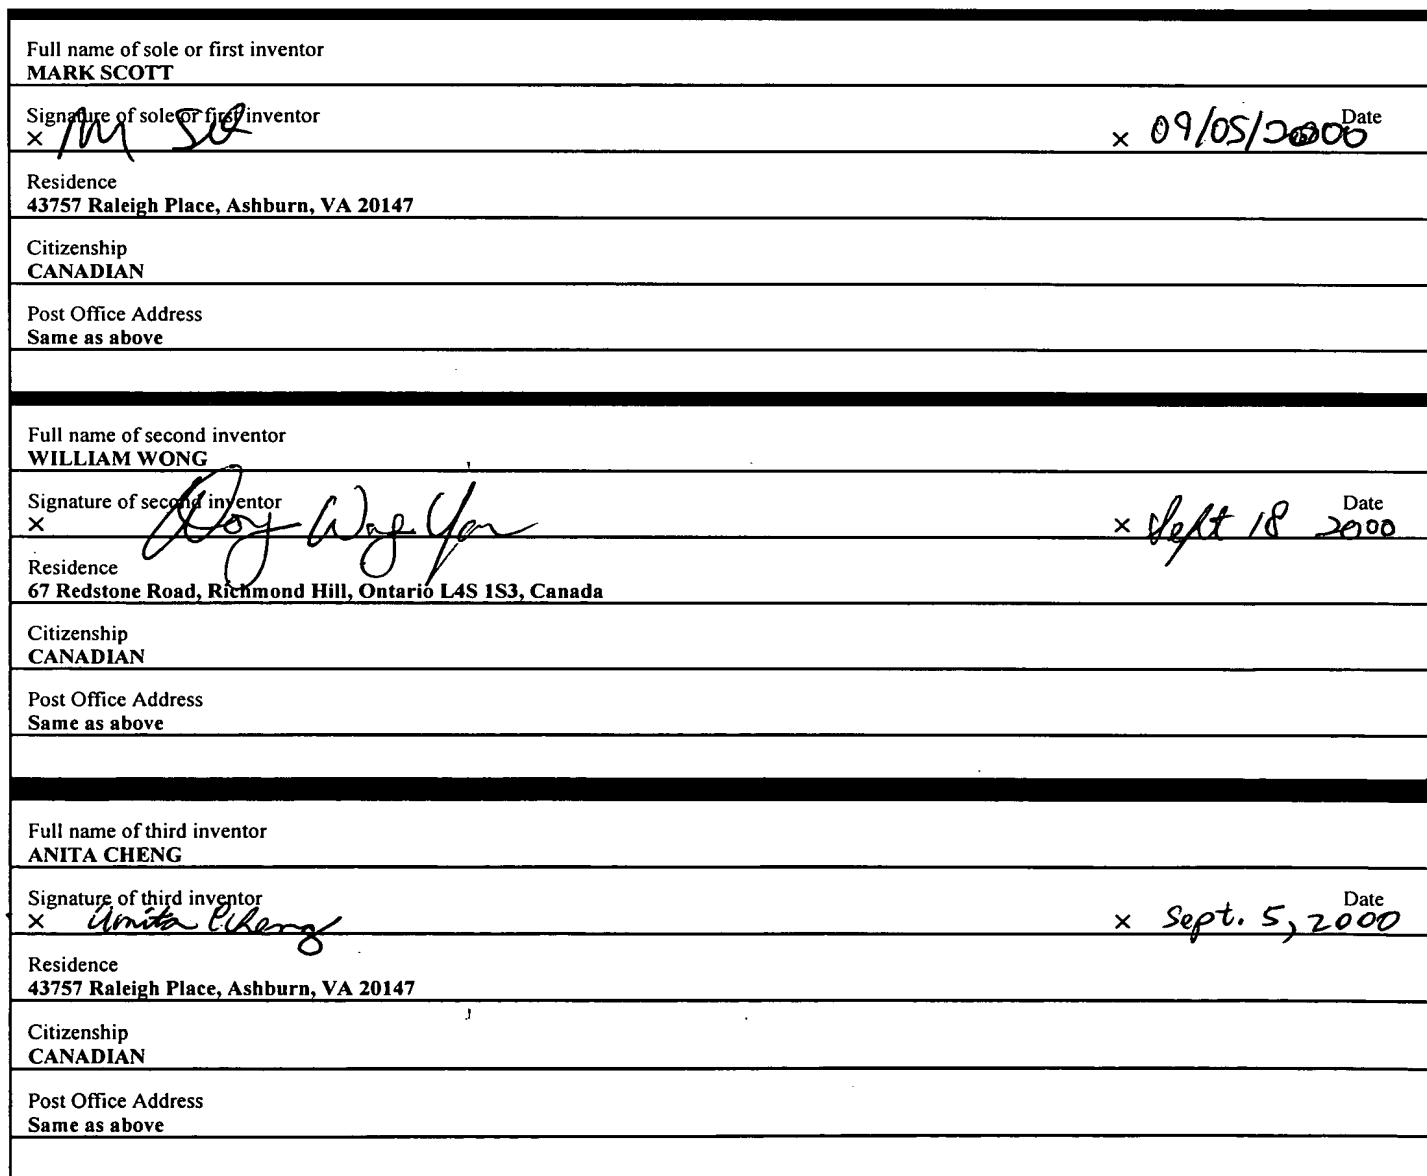 Full name of sole or first inventor
MARK SCOTT
Signature of sole or first inventor Date
× M × 09/05/2000
Residence
43757 Raleigh Place, Ashburn, VA 20147
Citizenship
CANADIAN
Post Office Address
Same as above
Full name of second inventor
WILLIAM WONG
Signature of second inventor Date
× × Sept 18 2000
Residence
67 Redstone Road, Richmond Hill, Ontario L4S 1S3, Canada
Citizenship
CANADIAN
Post Office Address
Same as above
Full name of third inventor
ANITA CHENG
Signature of third inventor Date
× Anita Cheng × Sept. 5, 2000
Residence
43757 Raleigh Place, Ashburn, VA 20147
Citizenship
CANADIAN
Post Office Address
Same as above